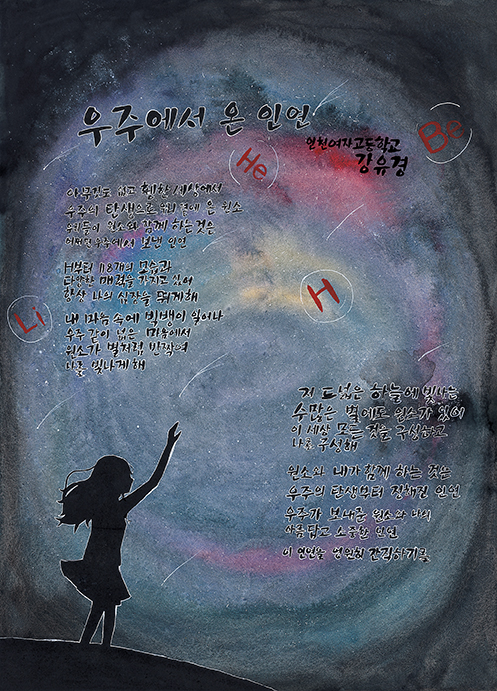 우주에서 온 인연
인천여자고등학교
강유경
He
Be
Li
H
아무것도 없고 휑한 세상에서
우주의 탄생으로 우리 곁에 온 원소
우리들이 원소와 함께 하는 것은
어쩌면 우주에서 보낸 인연
H부터 118개의 모습과
다양한 매력을 가지고 있어
항상 나의 심장을 뛰게 해
내 마음 속에 빅뱅이 일어나
우주 같이 넓은 마음에서
원소가 별처럼 반짝여
나를 빛나게 해
저 드넓은 하늘에 빛나는
수많은 별에도 원소가 있어
이 세상 모든 것을 구성하고
나를 구성해
원소와 내가 함께 하는 것은
우주의 탄생부터 정해진 인연
우주가 보내준 원소와 나의
아름답고 소중한 인연
이 인연을 영원히 간직하기를